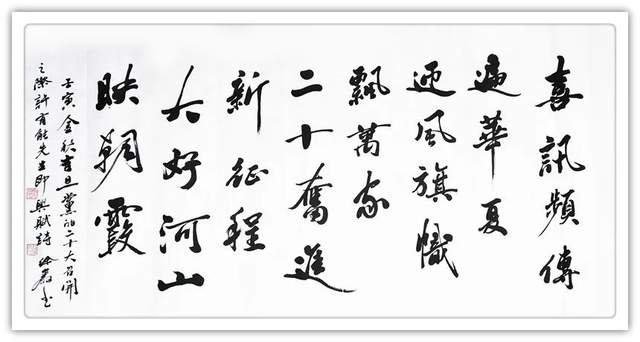 喜訊頻傳
遍華夏
迎風旗幟
飄萬家
二十奮進
新征程
大好河山
映朝霞
壬寅金秋吉旦黨的二十大召開
之際許有能先生即興賦詩 书